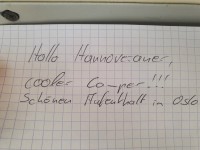 Hallo Hannoveraner,
cooler Camper!!!
Schönen Aufenthalt in Oslo